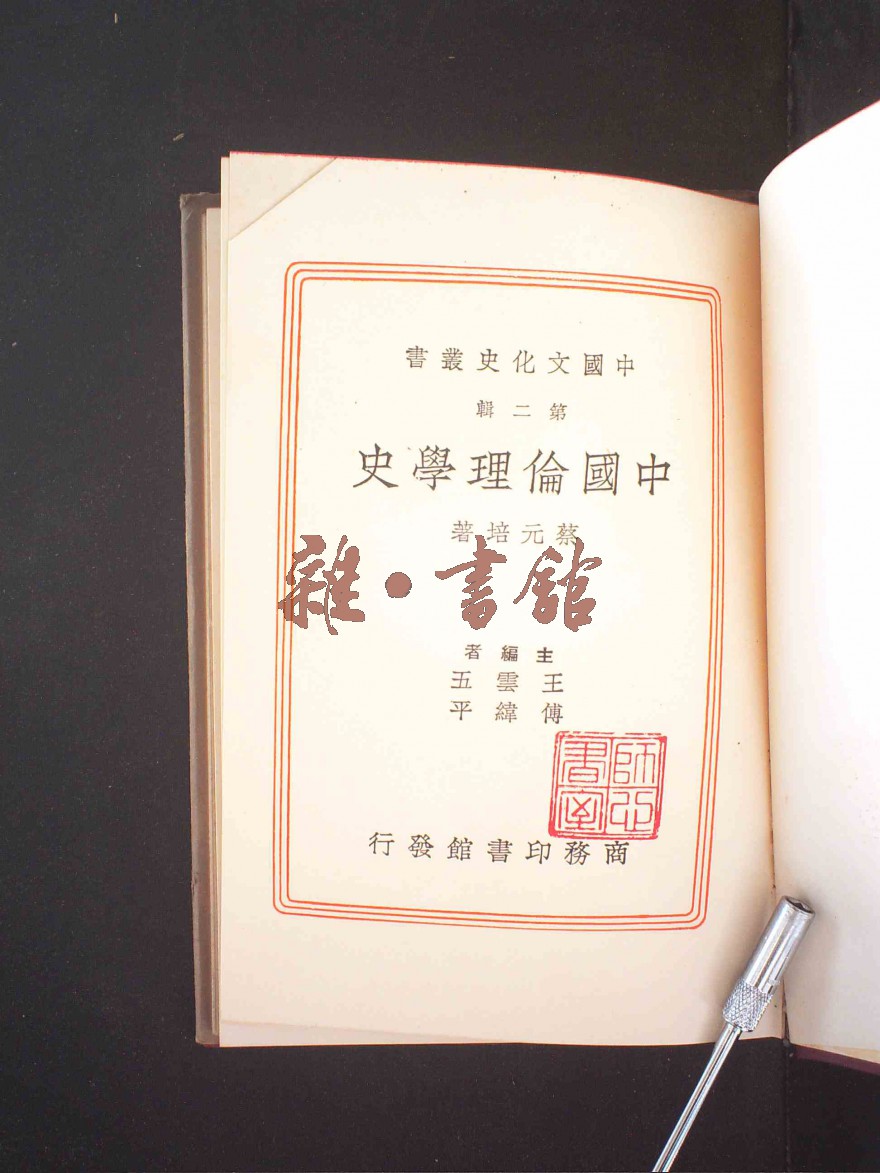 中國文化史叢書
第二輯
中國倫理學史
蔡元培著
雜·書館
主編者
王雲五
傅緯平
商務印書館發行